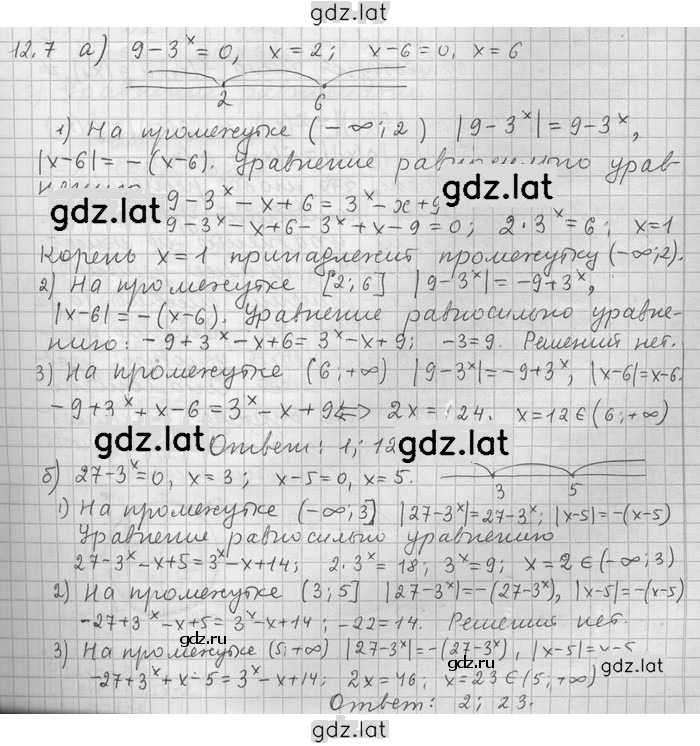 gdz.lat
12.7 а) 9-3ˣ=0, x=2; x-6=0, x=6
2 6
1) На промежутке (-∞;2) |9-3ˣ|=9-3ˣ,
|x-6|=-(x-6). Уравнение равносильно урав-
gdz.lat gdz.lat
9-3ˣ-x+6=3ˣ-x+9
9-3ˣ-x+6-3ˣ+x-9=0; 2·3ˣ=6; x=1
Корень x=1 принадлежит промежутку (-∞;2).
2) На промежутке [2;6] |9-3ˣ|=-9+3ˣ,
|x-6|=-(x-6). Уравнение равносильно уравне-
нию: -9+3ˣ-x+6=3ˣ-x+9; -3=9. Решений нет.
3) На промежутке (6;+∞) |9-3ˣ|=-9+3ˣ, |x-6|=x-6.
-9+3ˣ+x-6=3ˣ-x+9 <=> 2x=24. x=12∈(6;+∞)
gdz.lat gdz.lat
Ответ: 1; 12
б) 27-3ˣ=0, x=3; x-5=0, x=5.
3 5
1) На промежутке (-∞;3] |27-3ˣ|=27-3ˣ; |x-5|=-(x-5)
Уравнение равносильно уравнению
27-3ˣ-x+5=3ˣ-x+14; 2·3ˣ=18; 3ˣ=9; x=2∈(-∞;3)
2) На промежутке (3;5] |27-3ˣ|=-(27-3ˣ), |x-5|=-(x-5)
-27+3ˣ-x+5=3ˣ-x+14; -22=14. Решений нет.
gdz.ru
3) На промежутке (5;+∞) |27-3ˣ|=-(27-3ˣ), |x-5|=x-5
gdz.lat gdz.lat
-27+3ˣ+x-5=3ˣ-x+14; 2x=46; x=23∈(5;+∞)
Ответ: 2; 23.
gdz.lat